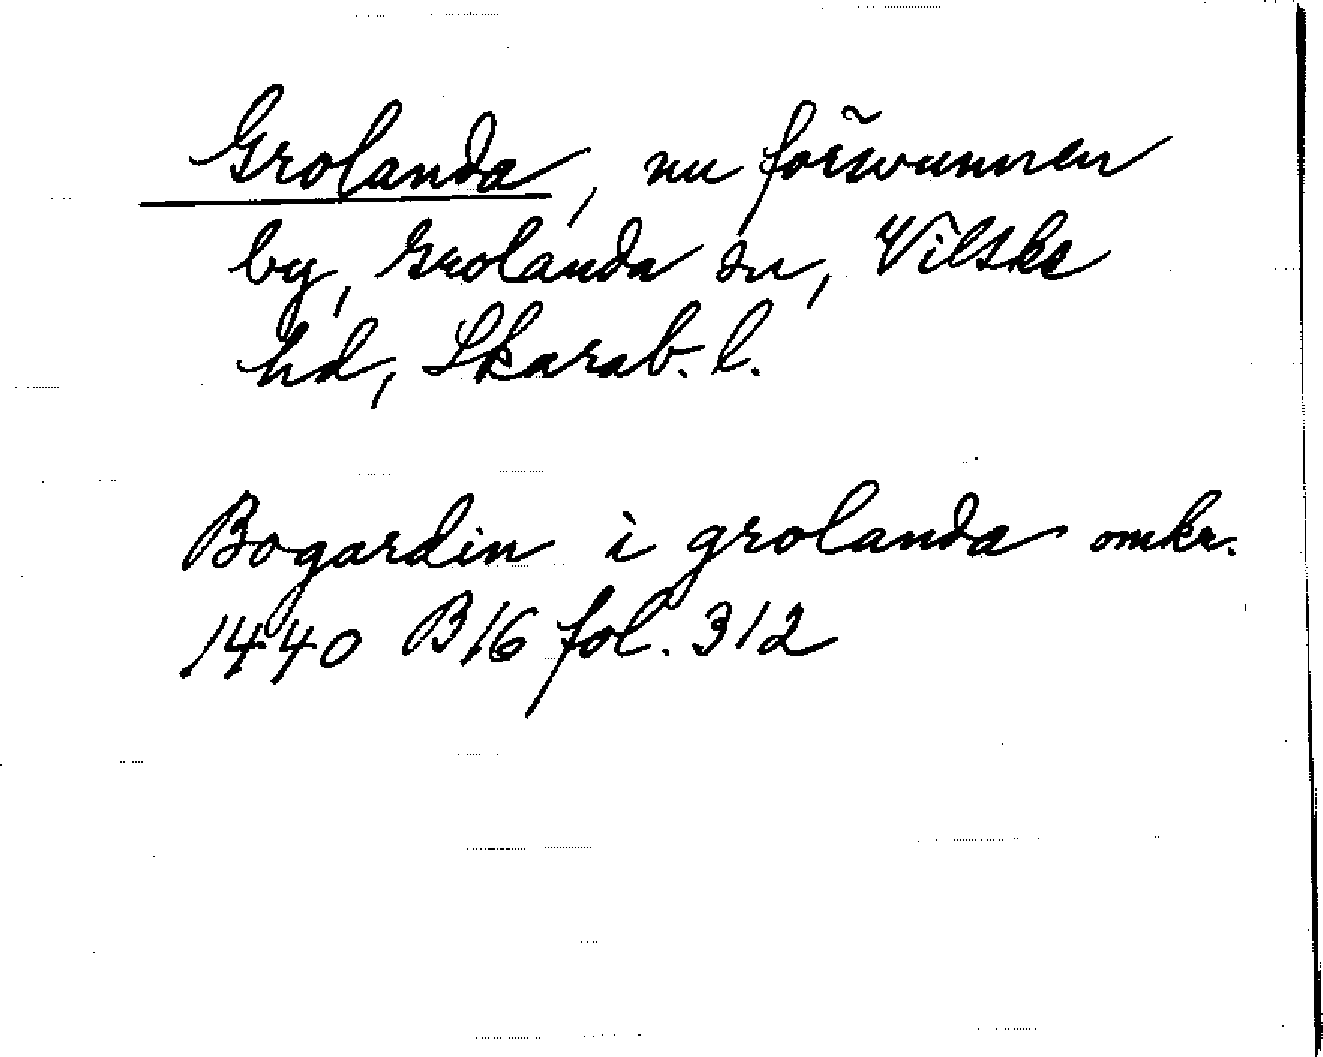 Grolanda, nu försvunnen
by, Grolanda sn, Vilske
hd, Skarab. l.
Bogardin i grolanda omkr.
1440 B16 fol. 312